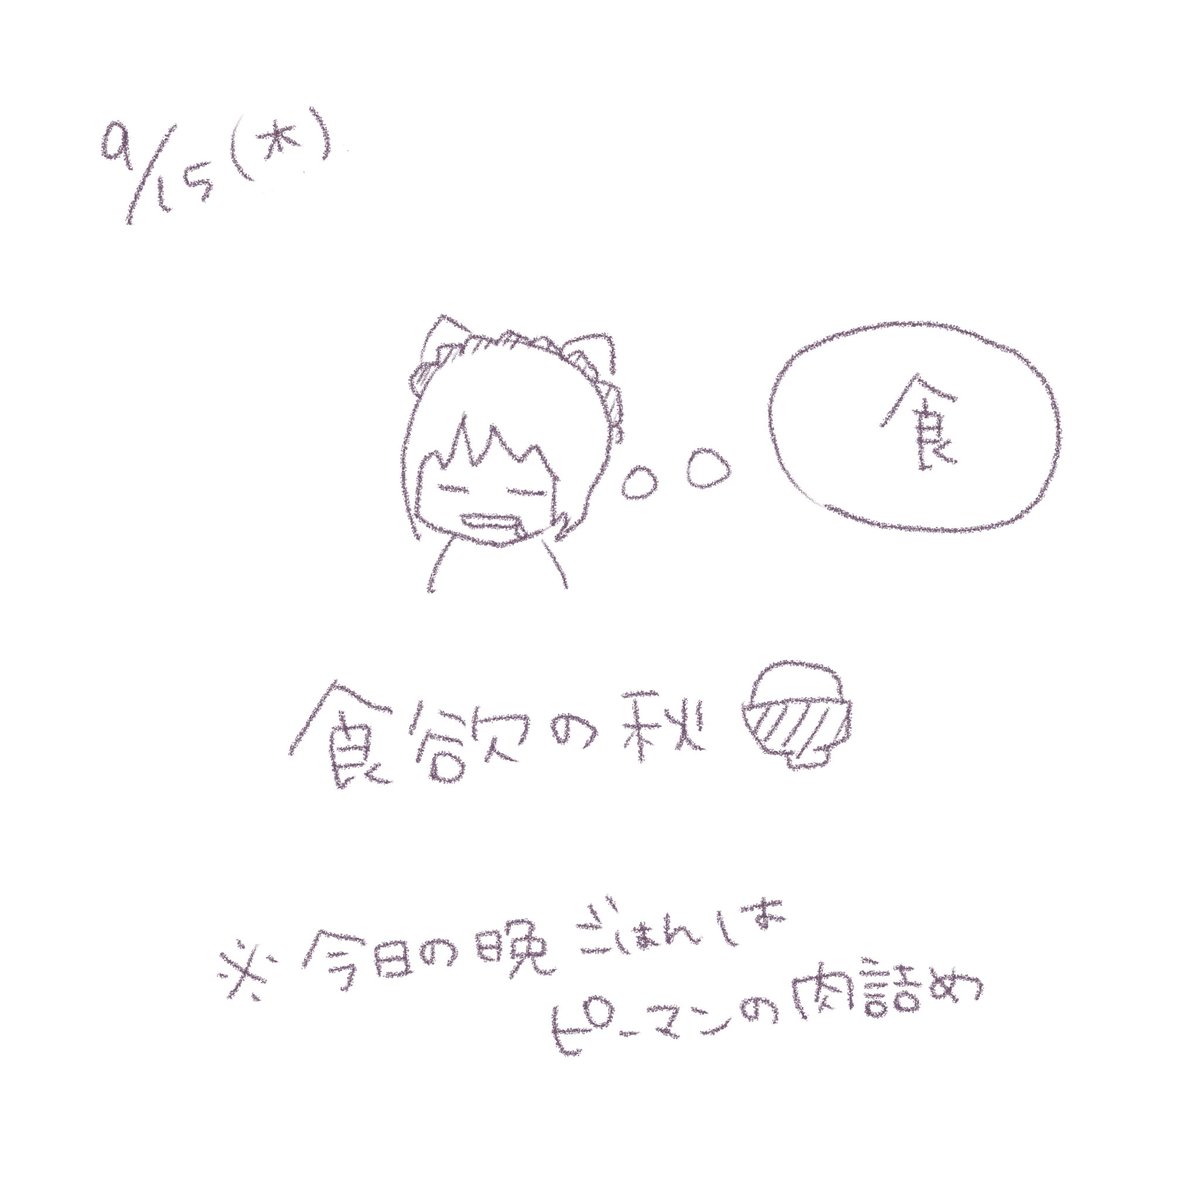 9/15(木)
食
食欲の秋
※今日の晩ごはんは
ピーマンの肉詰め